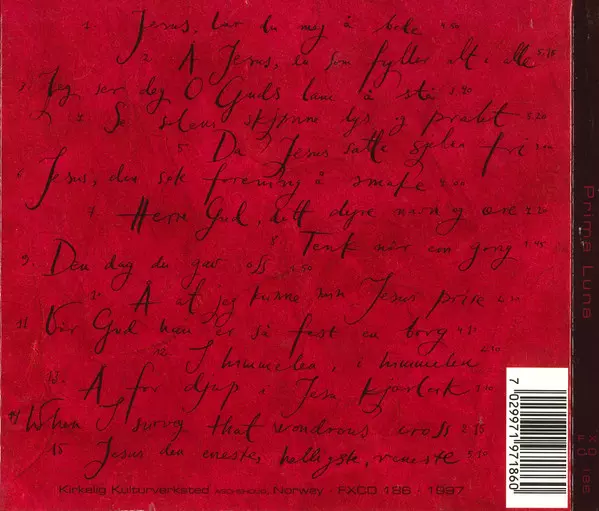 1 Jesus, lær du meg å bede 4.50
2 Å Jesus, du som fyller alt i alle 5.15
3 Jeg ser deg O Guds lam å stå 5.40
4 Se solens skjønne lys og prakt 5.20
5 Da Jesus satte sjelen fri
6 Jesus, den søte forening å smake
7 Herre Gud, ditt dyre navn og ære
8 Tenk når en gang 1.45
9 Den dag du gav oss 2.50
Å at jeg kunne min Jesus prise
11 Vår Gud han er så fast en borg
12 I himmelen, i himmelen
13 Å for djup i Jesu kjærleik
14 When I survey that wondrous cross
15 Jesus den eneste, helligste, reneste
Kirkelig Kulturverksted Norway · FXCD 186 · 1997
7 029971 971860
Prima Luna
FXCD 186